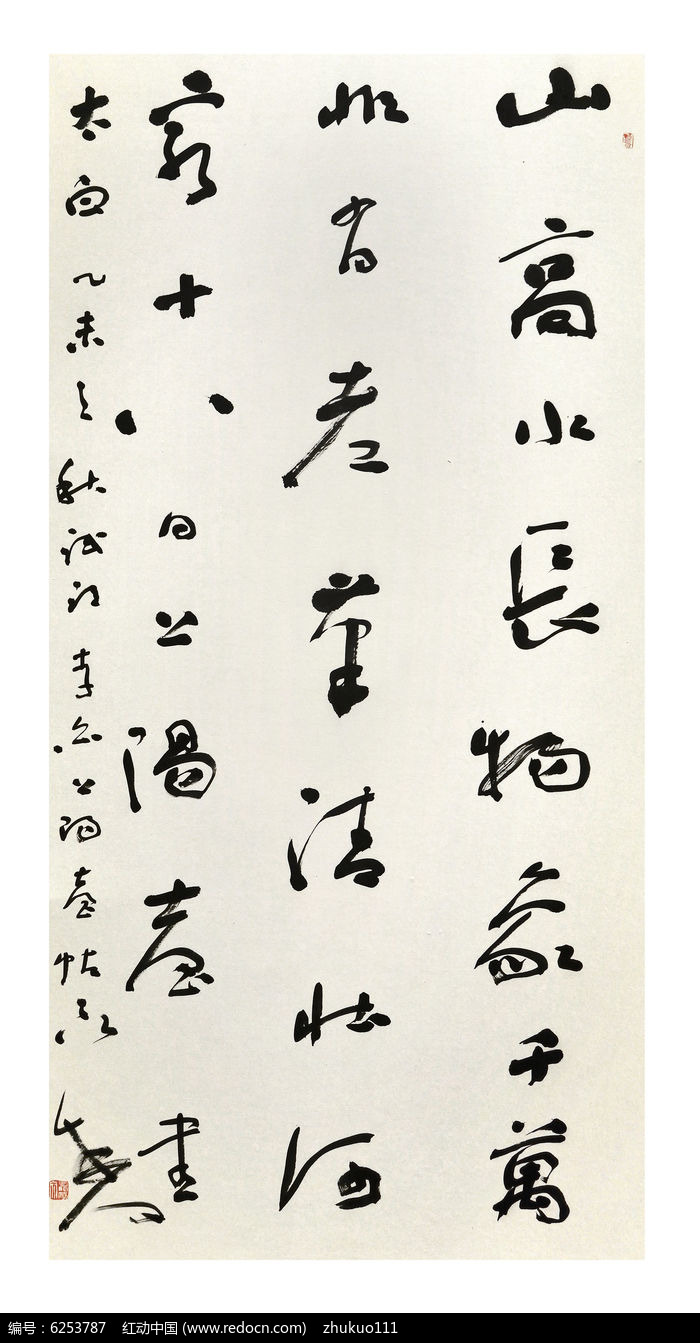 山高水長物象千萬
非有老筆清壯何
窮十八日上陽臺書
太白 乙未之秋試
李白上陽臺帖
编号：6253787 红动中国 (www.redocn.com) zhukuo111